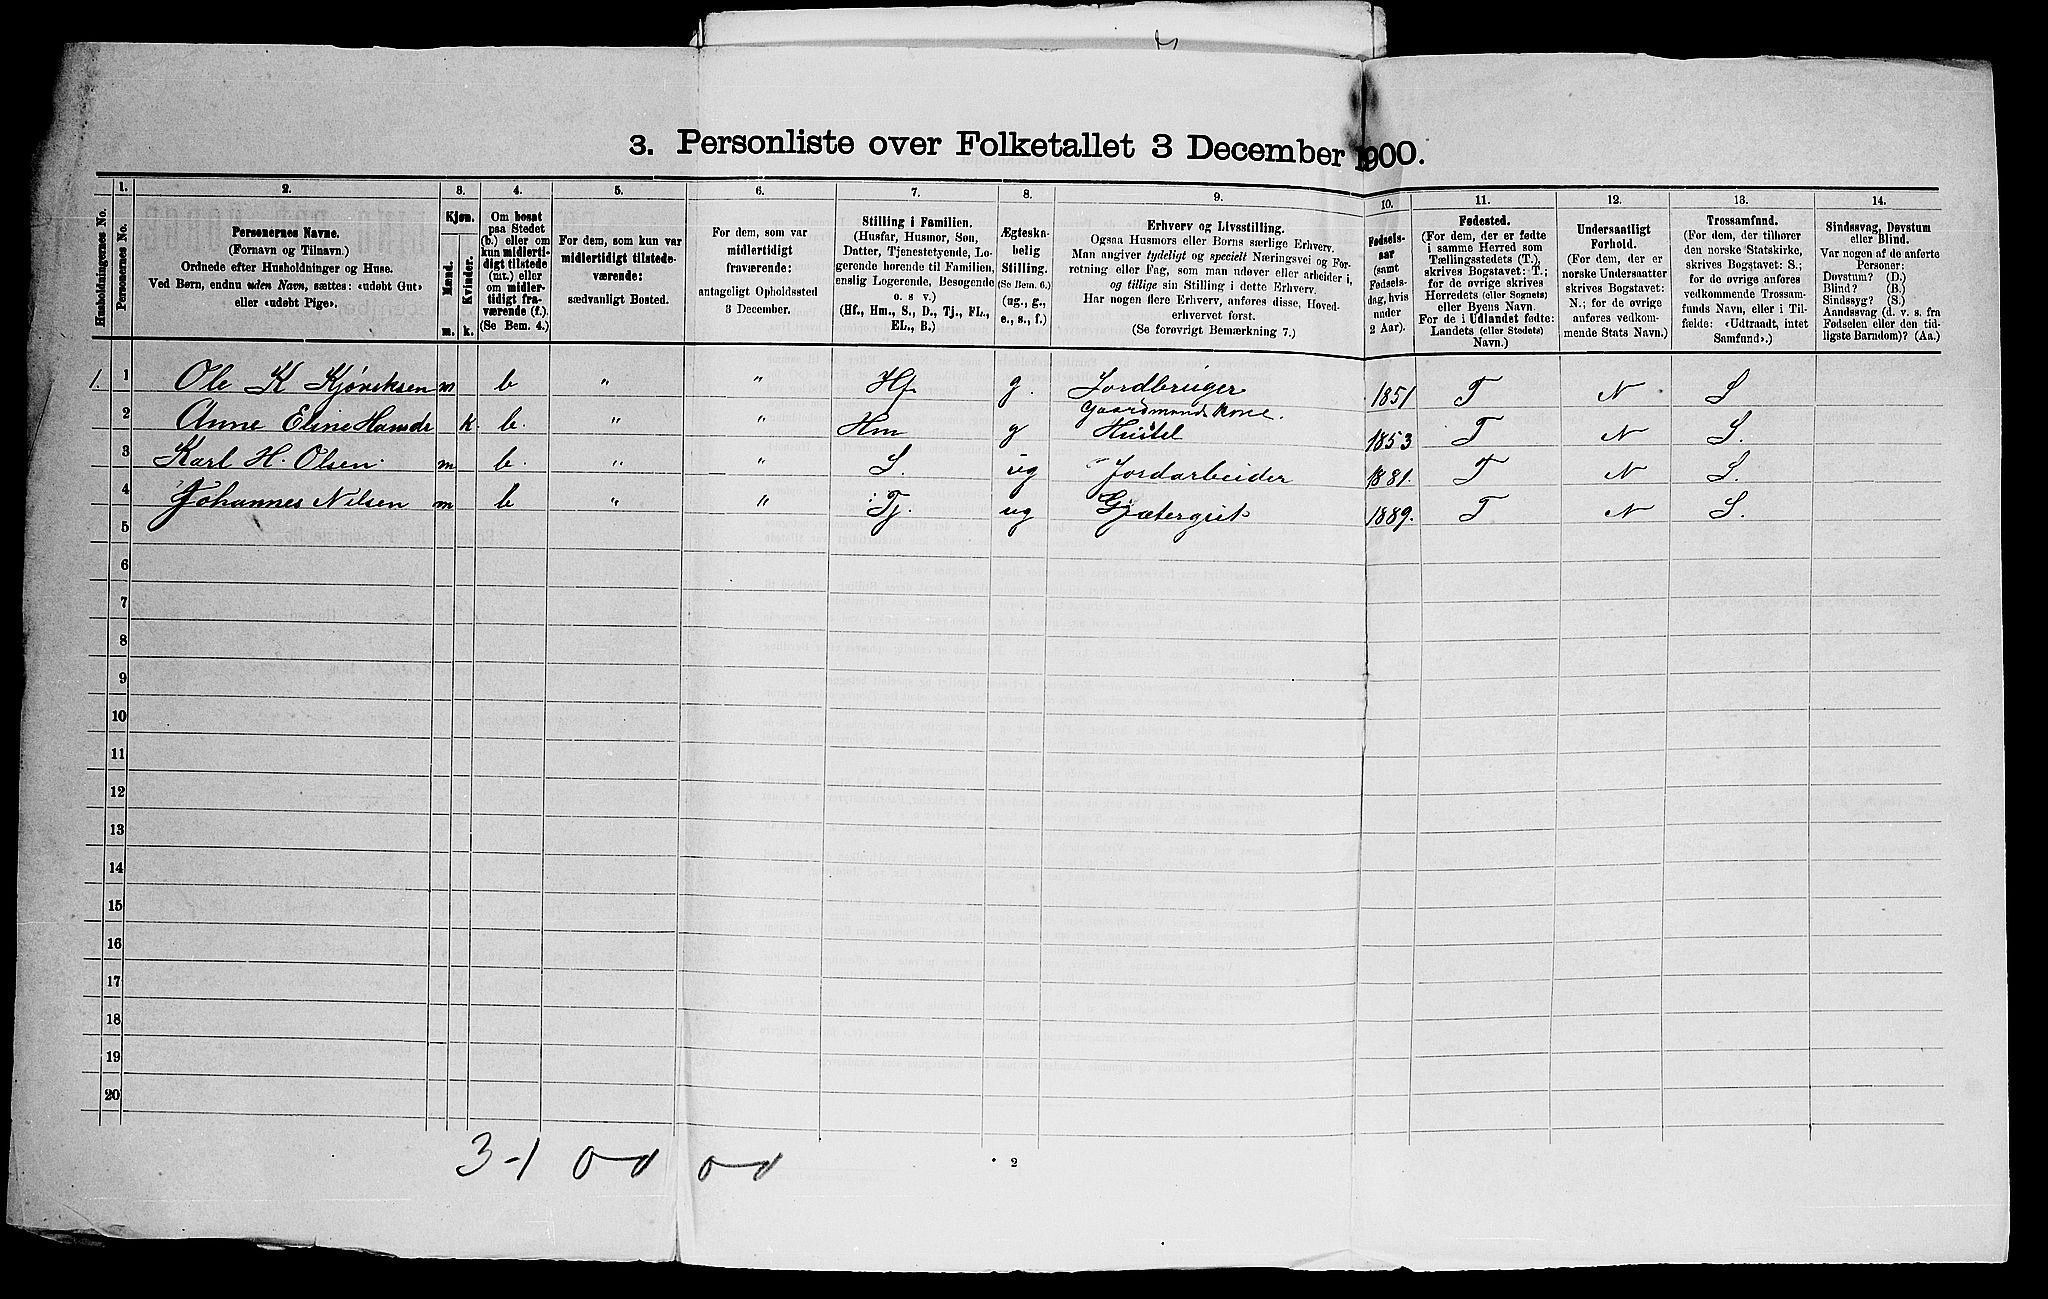 3. Personliste over Folketallet 3 December 1900.
Husholdningernes No.
1.
Personernes No.
2.
Personernes Navne.
(Fornavn og Tilnavn.)
Ordnede efter Husholdninger og Huse.
Ved Børn, endnu uden Navn, sættes: «udøbt Gut»
eller «udøbt Pige».
3.
Kjøn.
Mænd.
Kvinder.
m.
k.
4.
Om bosat
paa Stedet
(b.) eller om
kun midlerti-
digt tilstede
(mt.) eller
om midler-
tidigt fra-
værende (f.).
(Se Bem. 4.)
5.
For dem, som kun var
midlertidigt tilstede-
værende:
sædvanligt Bosted.
6.
For dem, som var
midlertidigt
fraværende:
antageligt Opholdssted
3 December.
7.
Stilling i Familien.
(Husfar, Husmor, Søn,
Datter, Tjenestetyende, Lo-
gerende hørende til Familien,
enslig Logerende, Besøgende
o. s v.)
(Hf., Hm., S., D., Tj., FL.,
EL., B.)
8.
Ægteska-
belig
Stilling.
(Se Bem. 6.)
(ug., g.,
e., s., f.)
9.
Erhverv og Livsstilling.
Ogsaa Husmors eller Børns særlige Erhverv.
Man angiver tydeligt og specielt Næringsvei og For-
retning eller Fag, som man udøver eller arbeider i,
og tillige sin Stilling i dette Erhverv.
Har nogen flere Erhverv, anføres disse, Hoved-
erhvervet først.
(Se forøvrigt Bemærkning 7.)
10.
Fødsels-
aar
(samt
Fødsels-
dag, hvis
under
2 Aar).
11.
Fødested.
(For dem, der er fødte
i samme Herred som
Tællingsstedets (T.),
skrives Bogstavet: T.;
for de øvrige skrives
Herredets (eller Sognets)
eller Byens Navn.
For de i Udlandet fødte:
Landets (eller Stedets)
Navn.)
12.
Undersaatligt
Forhold.
(For dem, der er
norske Undersaatter
skrives Bogstavet:
N.; for de øvrige
anføres vedkom-
mende Stats Navn.)
13.
Trossamfund.
(For dem, der tilhører
den norske Statskirke,
skrives Bogstavet: S.;
for de øvrige anføres
vedkommende Trossam-
funds Navn, eller i Til-
fælde: «Udtraadt, intet
Samfund».)
14.
Sindssvag, Døvstum
eller Blind.
Var nogen af de anførte
Personer:
Døvstum? (D.)
Blind? (B.)
Sindssyg? (S.)
Aandssvag (d. v. s. fra
Fødselen eller den tid-
ligste Barndom)? (Aa.)
1. 1 Ole K Kjøveksen m b " " Hf g. Jordbruger 1851 T N S
2 Anne Eline Hansdr k. b. " " Hm g Gaardmandskone. Hustel 1853 T N S.
3 Karl H. Olsen. m b. " " S. ug Jordarbeider 1881. T N S.
4 Johannes Nilsen m b " " Tj. ug Gjætergut 1889. T N S.
5
6
7
8
9
10
11
12
13
14
15
16
17
18
19
20
3-1 0-0 0-0
2